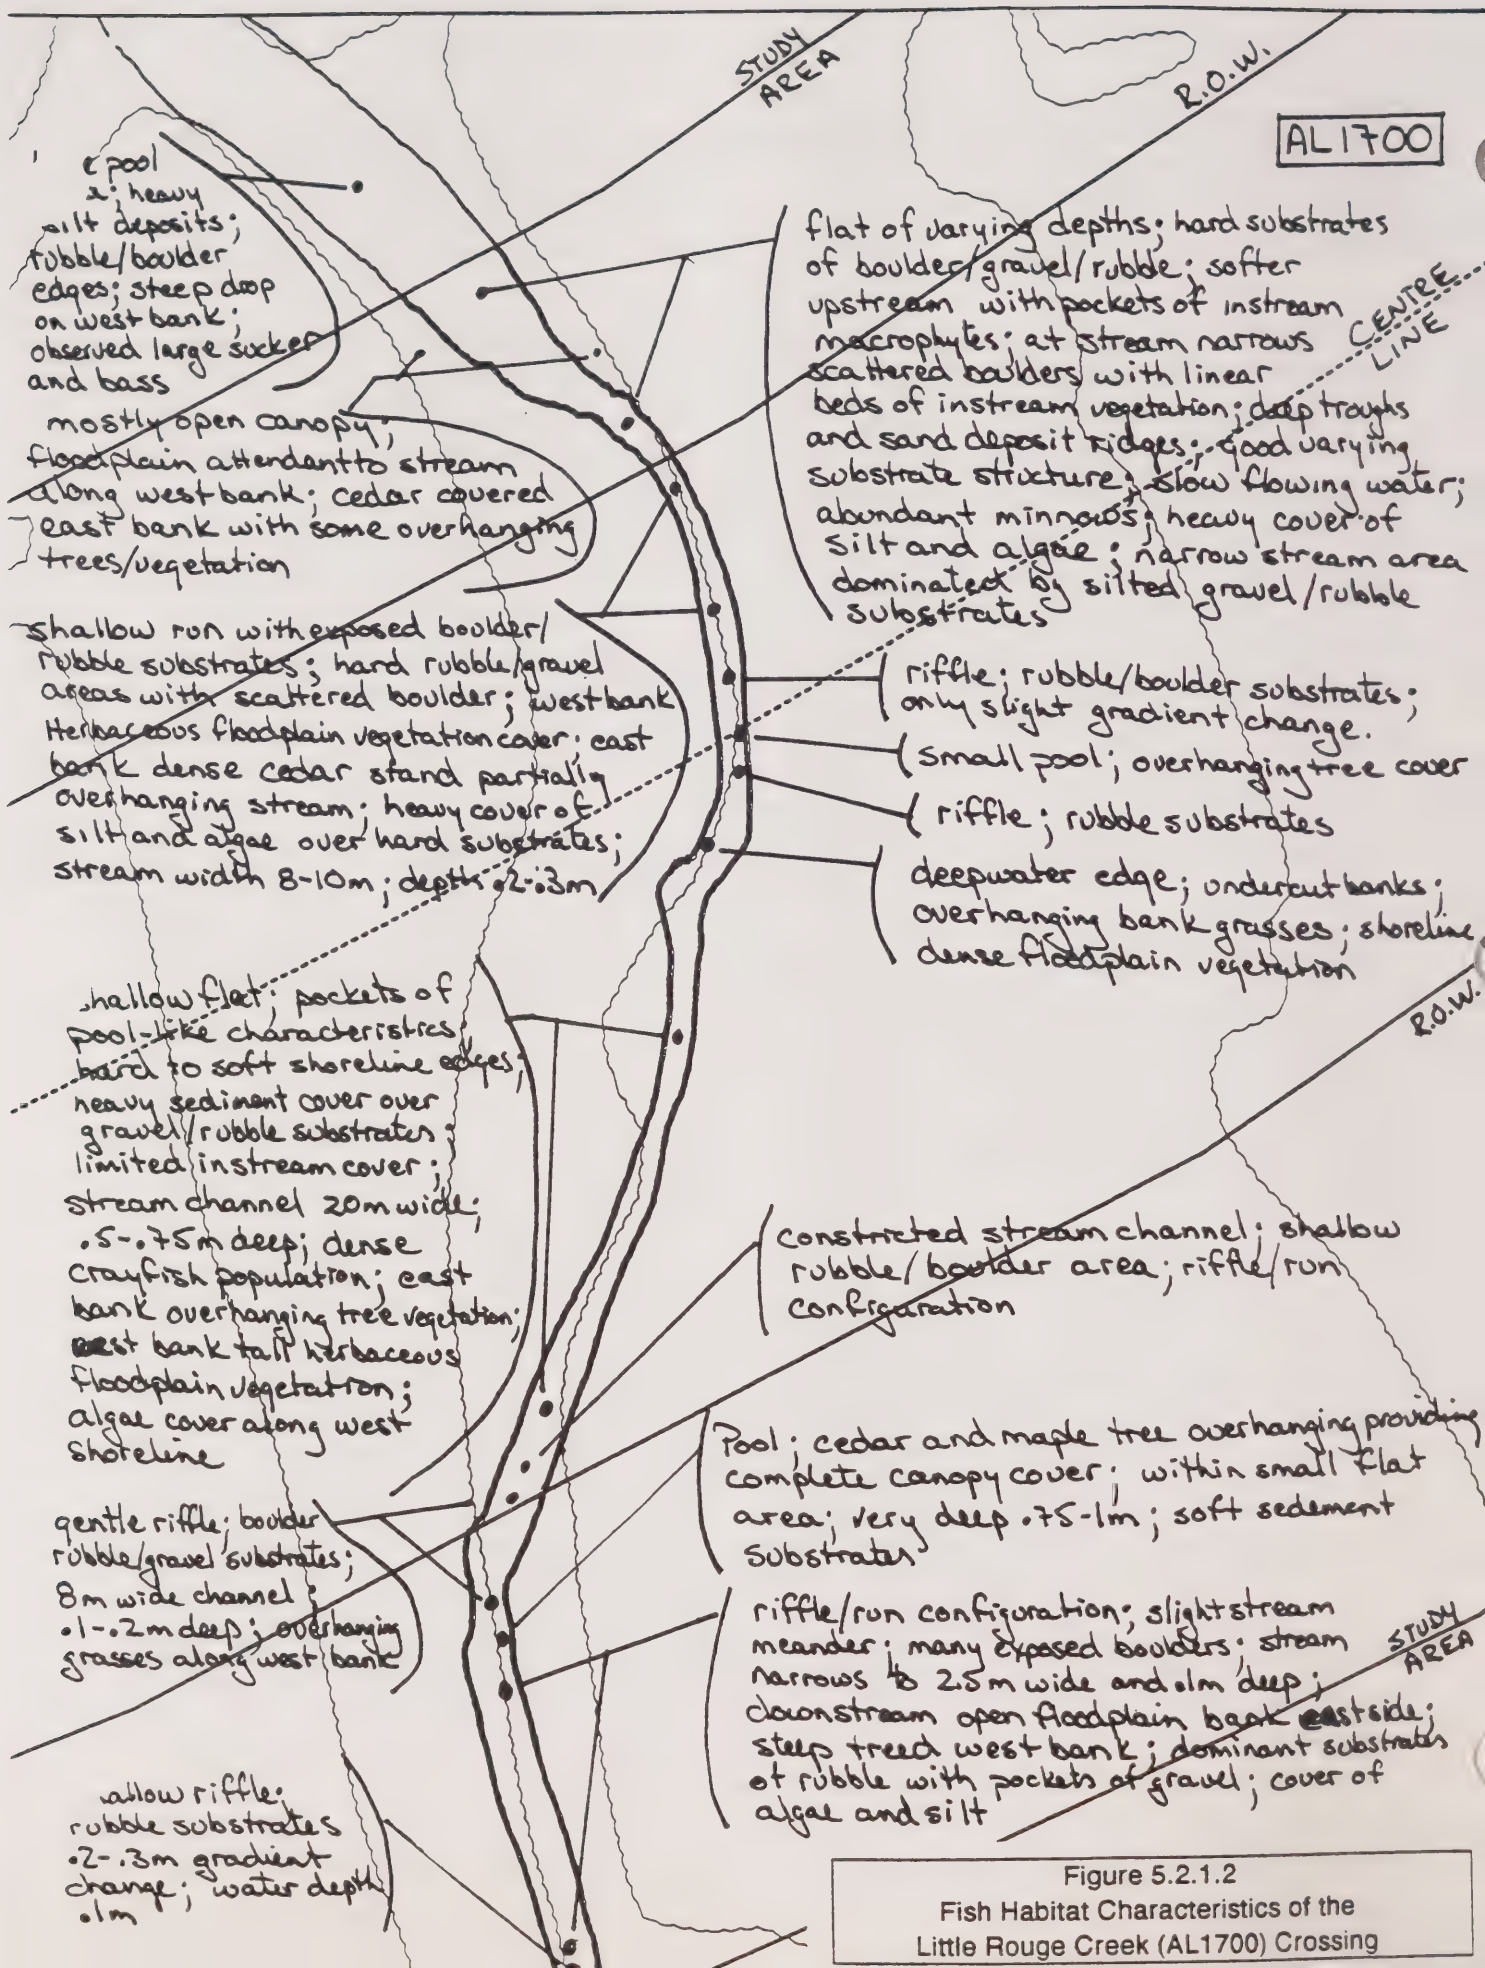 STUDY
AREA
R.O.W.
AL1700
pool
heavy
silt deposits;
rubble/boulder
edges; steep drop
on west bank;
observed large sucker
and bass
mostly open canopy;
floodplain attendant to stream
along west bank; cedar covered
east bank with some overhanging
trees/vegetation
shallow run with exposed boulder/
rubble substrates; hard rubble/gravel
areas with scattered boulder; west bank
Herbaceous floodplain vegetation cover; east
bank dense cedar stand partially
overhanging stream; heavy cover of
silt and algae over hard substrates;
stream width 8-10m; depth .2-.3m
hallow flat; pockets of
pool-like characteristics;
hard to soft shoreline edges;
heavy sediment cover over
gravel/rubble substrates;
limited instream cover;
stream channel 20m wide;
.5-.75m deep; dense
crayfish population; east
bank overhanging tree vegetation;
west bank tall herbaceous
floodplain vegetation;
algae cover along west
shoreline
gentle riffle; boulder
rubble/gravel substrates;
8m wide channel;
.1-.2m deep; overhanging
grasses along west bank
allow riffle;
rubble substrates
.2-.3m gradient
change; water depth
.1m
flat of varying depths; hard substrates
of boulder/gravel/rubble; softer
upstream with pockets of instream
macrophytes; at stream narrows
scattered boulders with linear
beds of instream vegetation; deep troughs
and sand deposit ridges; good varying
substrate structure; slow flowing water;
abundant minnows; heavy cover of
silt and algae; narrow stream area
dominated by silted gravel/rubble
substrates
CENTRE
LINE
riffle; rubble/boulder substrates;
only slight gradient change.
small pool; overhanging tree cover
riffle; rubble substrates
deepwater edge; undercut banks;
overhanging bank grasses; shoreline
dense floodplain vegetation
R.O.W.
constricted stream channel; shallow
rubble/boulder area; riffle/run
configuration
Pool; cedar and maple tree overhanging providing
complete canopy cover; within small flat
area; very deep .75-1m; soft sedement
substrates
riffle/run configuration; slight stream
meander; many exposed boulders; stream
narrows to 2.5m wide and .1m deep;
downstream open floodplain bank east side;
steep treed west bank; dominant substrates
of rubble with pockets of gravel; cover of
algae and silt
STUDY
AREA
Figure 5.2.1.2
Fish Habitat Characteristics of the
Little Rouge Creek (AL1700) Crossing